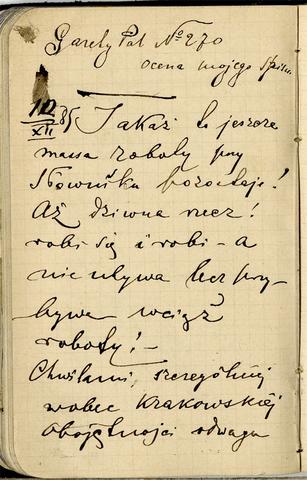 Gazety Pol № 270
ocena mojego
12/XII 85 Jakaż to jeszcze
massa roboty przy
Słowniku pozostaje!
Aż dziwna rzecz!
robi się i robi – a
nie ubywa lecz przy-
bywa wciąż
roboty! –
Chwilami, szczególniej
wobec Krakowskiej
obojętności odwaga